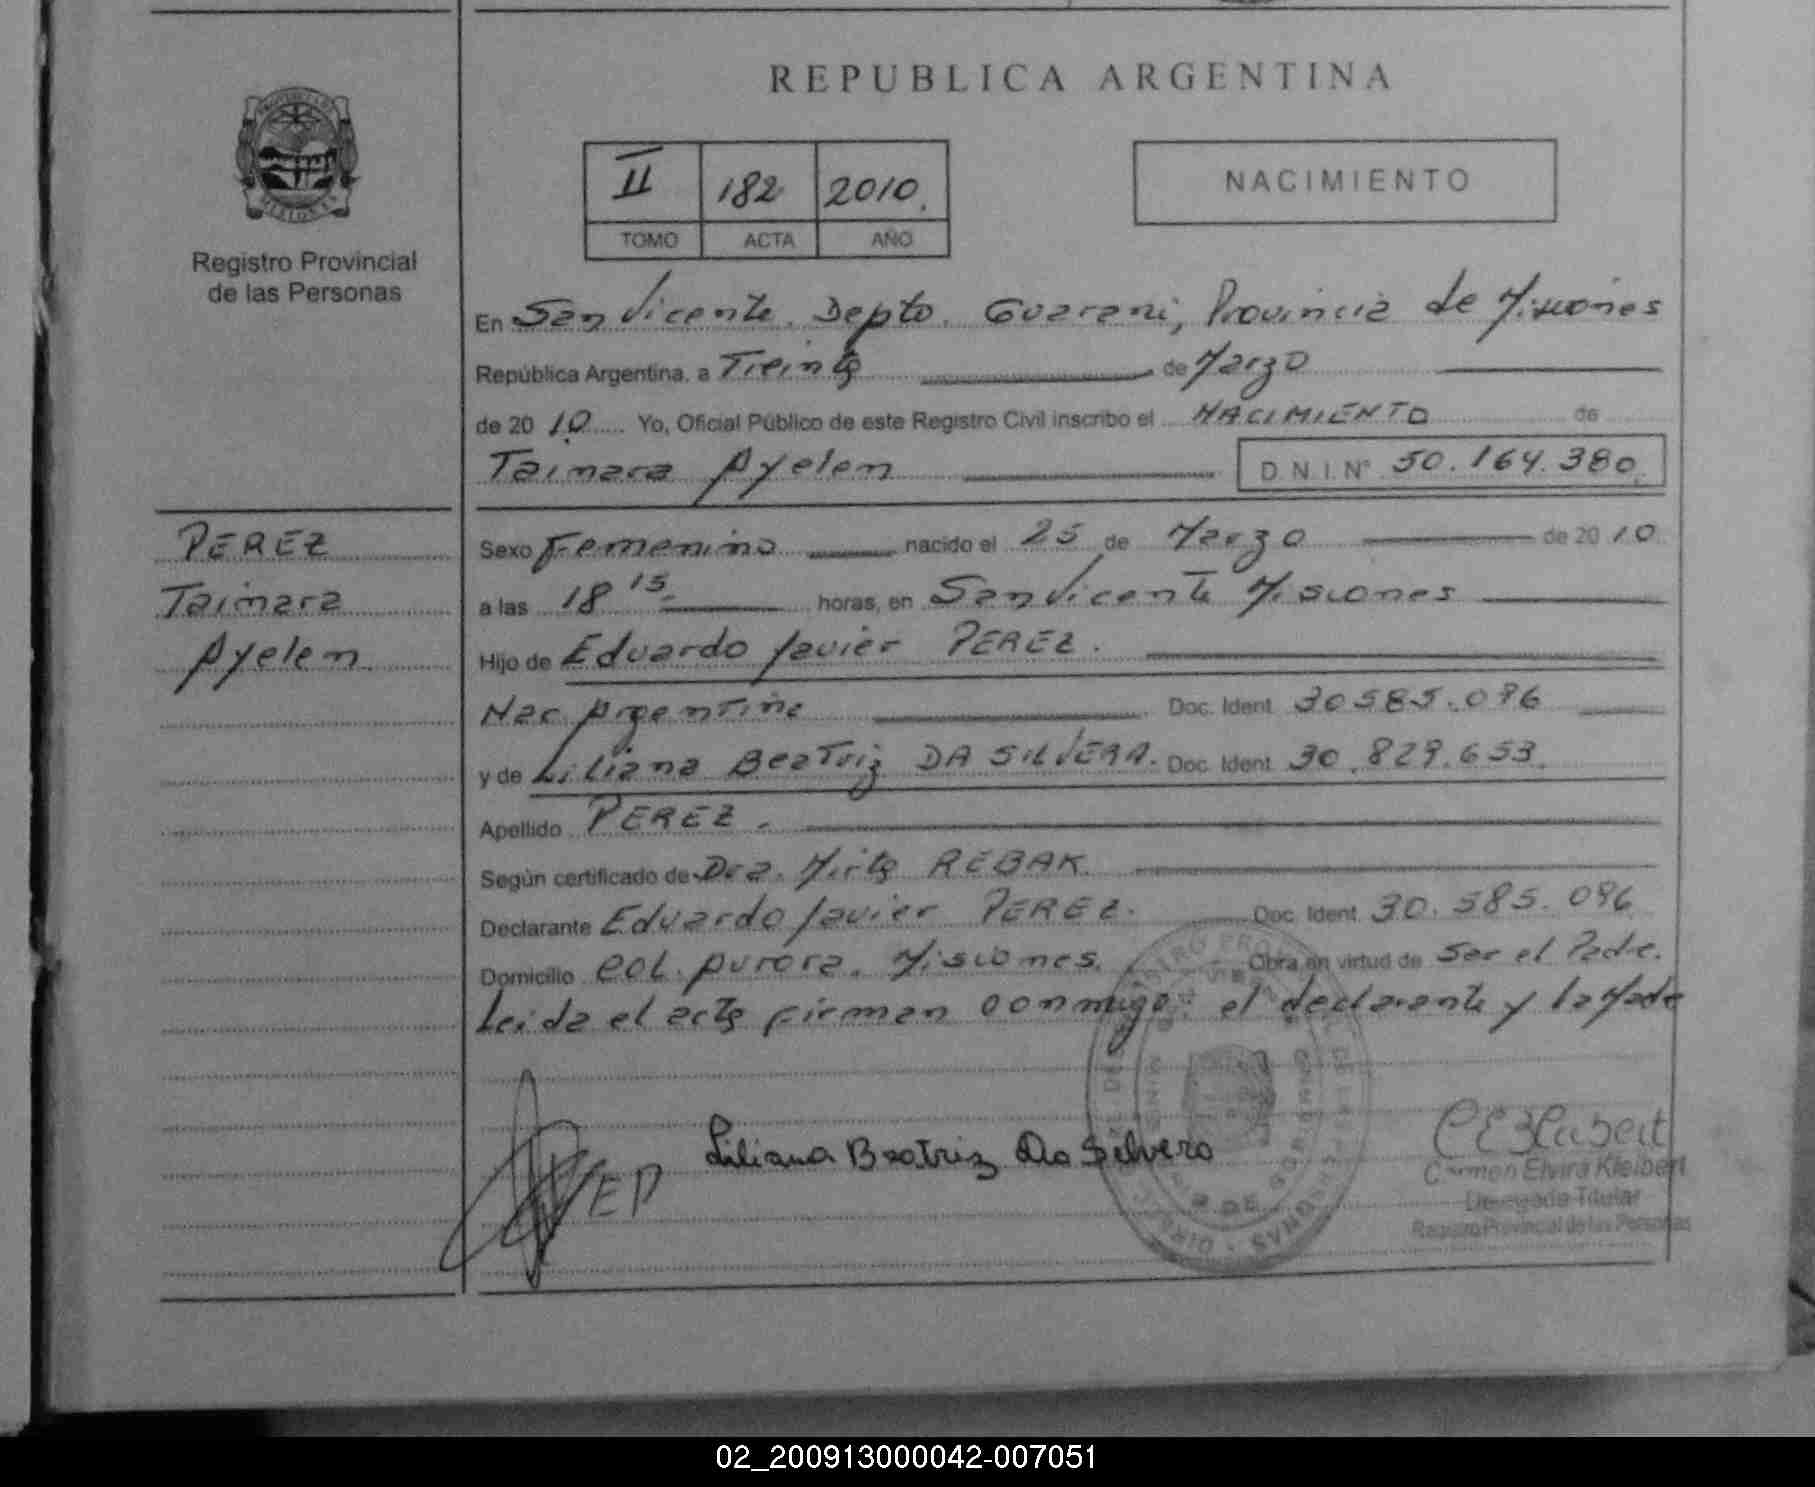 REPUBLICA ARGENTINA
II 182 2010.
TOMO ACTA AÑO
NACIMIENTO
PROVINCIA DE
MISIONES
Registro Provincial
de las Personas
En San Vicente. Depto. Guarani, Provincia de Misiones
República Argentina, a Treinta de Marzo
de 2010 Yo, Oficial Público de este Registro Civil inscribo el NACIMIENTO de
Taimara Ayelem D.N.I. N° 50.164.380.
PEREZ
Taimara
Ayelem
Sexo Femenino nacido el 25 de Marzo de 2010
a las 18 15. horas, en San Vicente Misiones
Hijo de Eduardo Javier PEREZ.
Nac. Argentina Doc. Ident. 30585.096
y de Liliana Beatriz DA SILVERA. Doc. Ident. 30.829.653.
Apellido PEREZ.
Según certificado de Dra. Mirta REBAK
Declarante Eduardo Javier PEREZ. Doc. Ident. 30.585.096
Domicilio Col. Aurora. Misiones. Obra en virtud de Ser el Padre.
Leida el acta firman conmigo: el declarante y la Madre
EP
Liliana Beatriz Da Silvero
Carmen Elvira Kleibert
Delegada Titular
Registro Provincial de las Personas
02_200913000042-007051